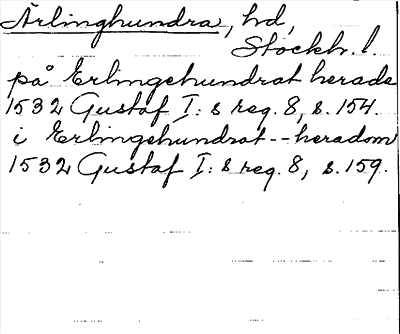 Ärlinghundra, hd,
Stockh. l.
på Erlingehundrat herade
1532 Gustaf I:s reg. 8, s. 154.
i Erlingehundrat--heradom
1532 Gustaf I:s reg. 8, s. 159.